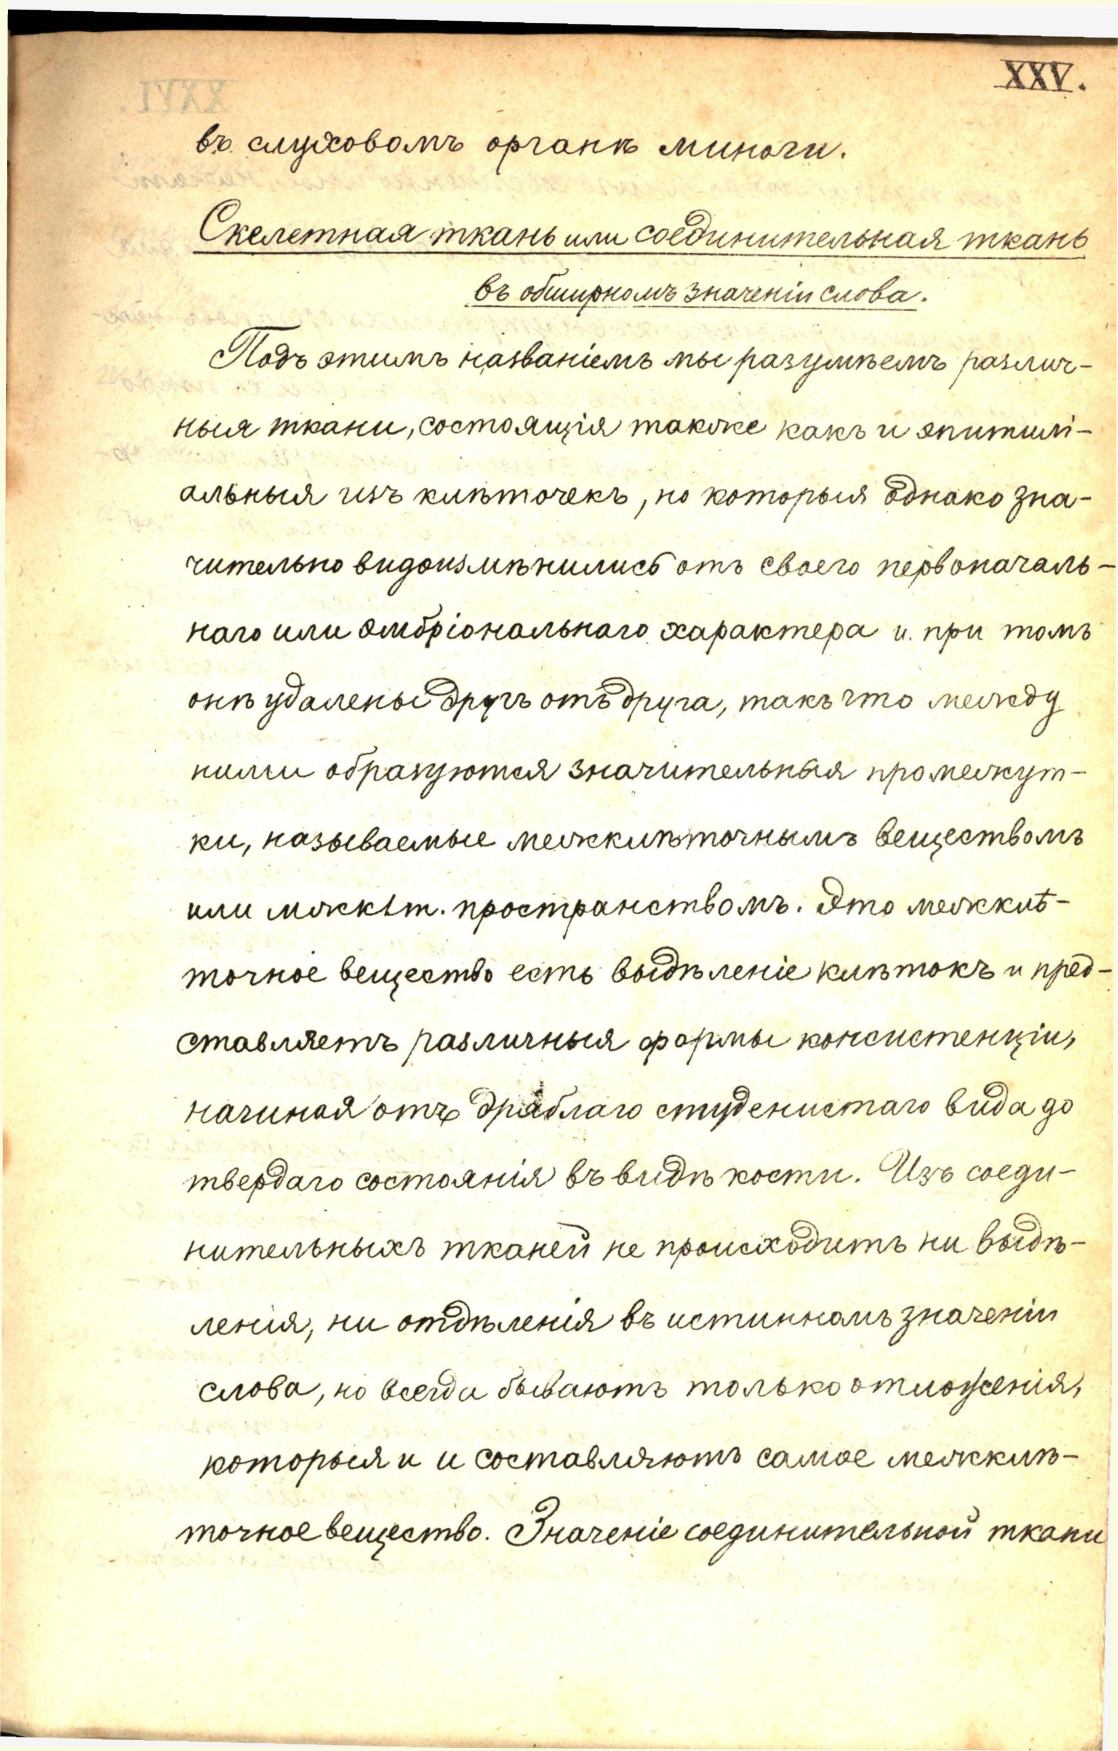 XXV.
въ слуховомъ органѣ миноги.
Скелетная ткань или соединительная ткань
въ обширномъ значеніи слова.
Подъ этимъ названіемъ мы разумѣемъ различ-
ныя ткани, состоящія также какъ и эпителі-
альныя изъ клѣточекъ, но которыя однако зна-
чительно видоизмѣнились отъ своего первоначаль-
наго или эмбріональнаго характера и при томъ
онѣ удалены другъ отъ друга, такъ что между
ними образуются значительныя промежут-
ки, называемые межклѣточнымъ веществомъ
или пространствомъ. Это межклѣ-
точное вещество есть выдѣленіе клѣтокъ и пред-
ставляетъ различныя формы консистенціи,
начиная отъ дряблаго студенистаго вида до
твердаго состоянія въ видѣ кости. Изъ соеди-
нительныхъ тканей не происходитъ ни выдѣ-
ленія, ни отдѣленія въ истинномъ значеніи
слова, но всегда бываютъ только отложенія,
которыя и и составляютъ самое межклѣ-
точное вещество. Значеніе соединительной ткани